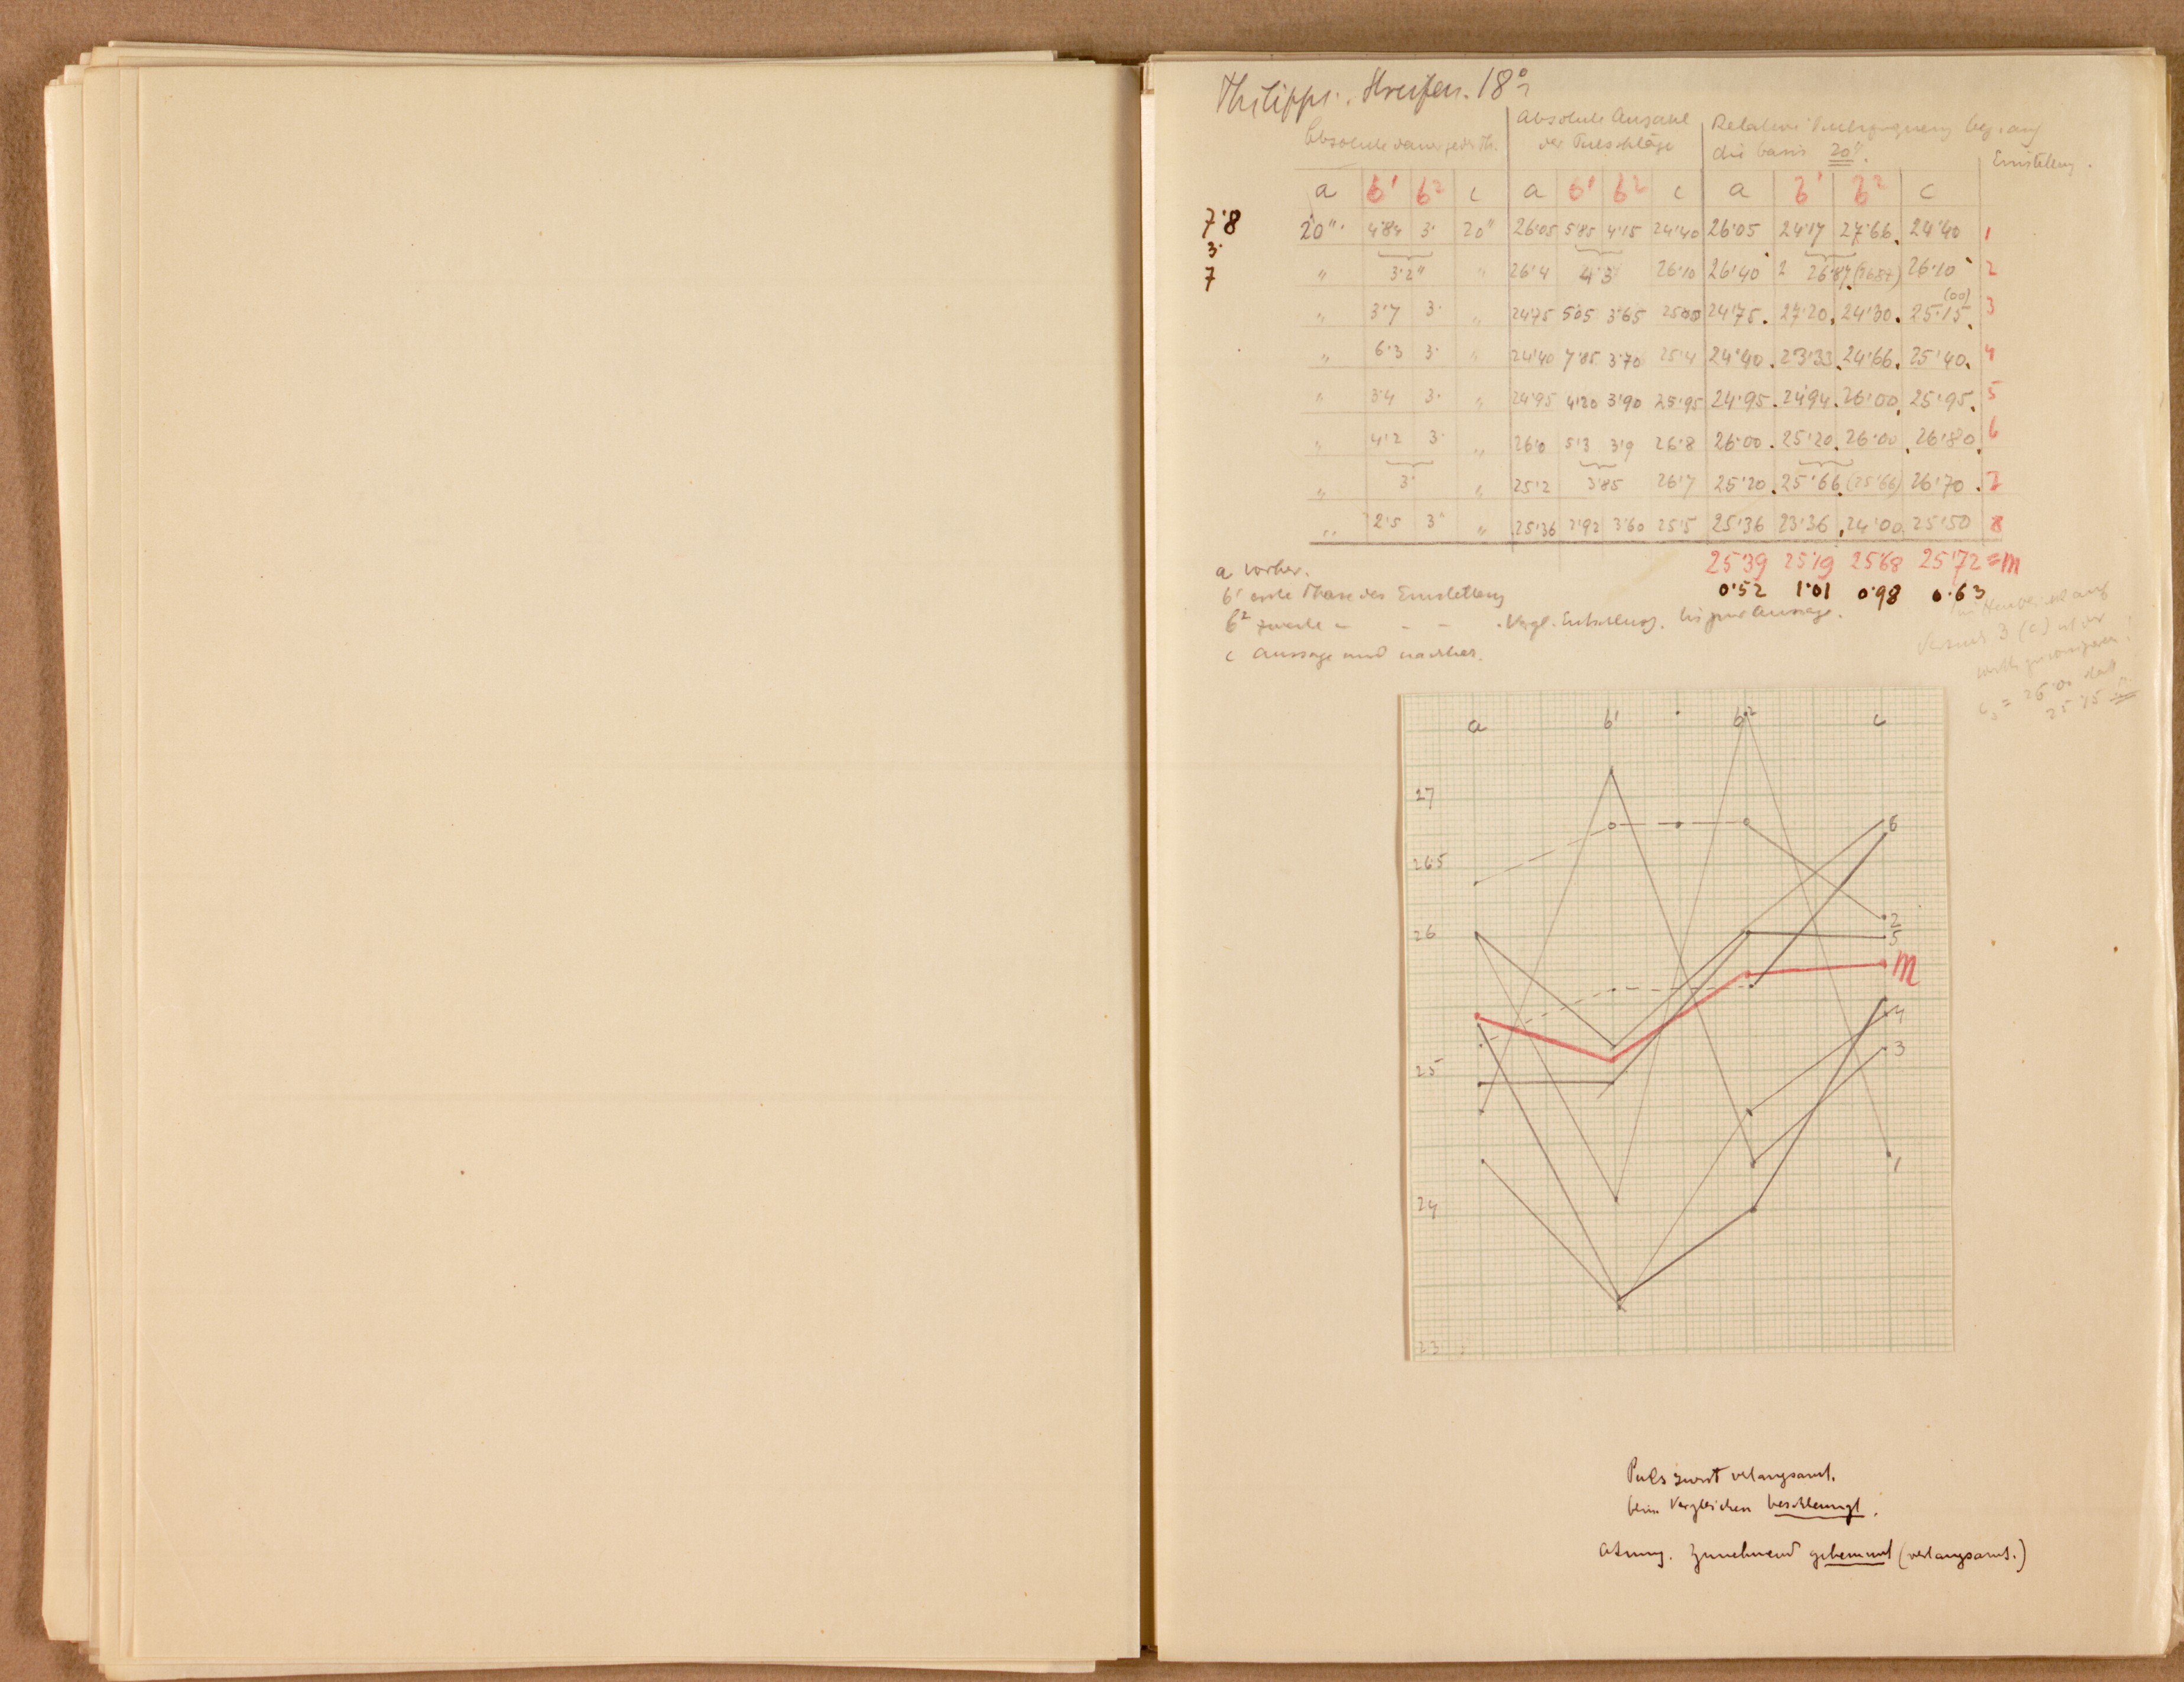 Philipps. Streifen. 18°
Absolute Dauer jeder Ph.
Absolute Anzahl
der Pulsschläge
Relative bez. auf
die basis 20".
Einstellung.
a b¹ b² c a b¹ b² c a b¹ b² c
7'8 20" 4'84 3' 20" 26'05 5'85 4'15 24'40 26'05 24'17 27'66 24'40 1
3'
7 " 3'2" " 26'4 4'3 26'10 26'40 26'87 (26'87) 26'10 2
" 3'7 3' " 24'75 5'05 3'65 25'00 24'75 27'20 24'30 25'15 (00) 3
" 6'3 3' " 24'40 7'85 3'70 25'4 24'40 23'33 24'66 25'40 4
" 3'4 3' " 24'95 4'20 3'90 25'95 24'95 24'94 26'00 25'95 5
" 4'2 3' " 26'0 5'3 3'9 26'8 26'00 25'20 26'00 26'80 6
" 3' " 25'2 3'85 26'7 25'20 25'66 (25'66) 26'70 7
" 2'5 3" " 25'36 2'92 3'60 25'5 25'36 23'36 24'00 25'50 8
25'39 25'19 25'68 25'72 = M
0'52 1'01 0'98 0'63
a vorher.
b¹ erste Phase der Einstellung
b² zweite " - - . Vergl. Entschluss. bis zur Aussage.
c Aussage und nachher.
Versuch 3 (c)
c₃ = 25'00 statt
25'15
a b¹ b² c
27
26.5
26
25
24
23
6
2
5
M
4
3
1
Puls zuerst verlangsamt,
beim Vergleichen beschleunigt.
Atmung. Zunehmend gehemmt (verlangsamt.)